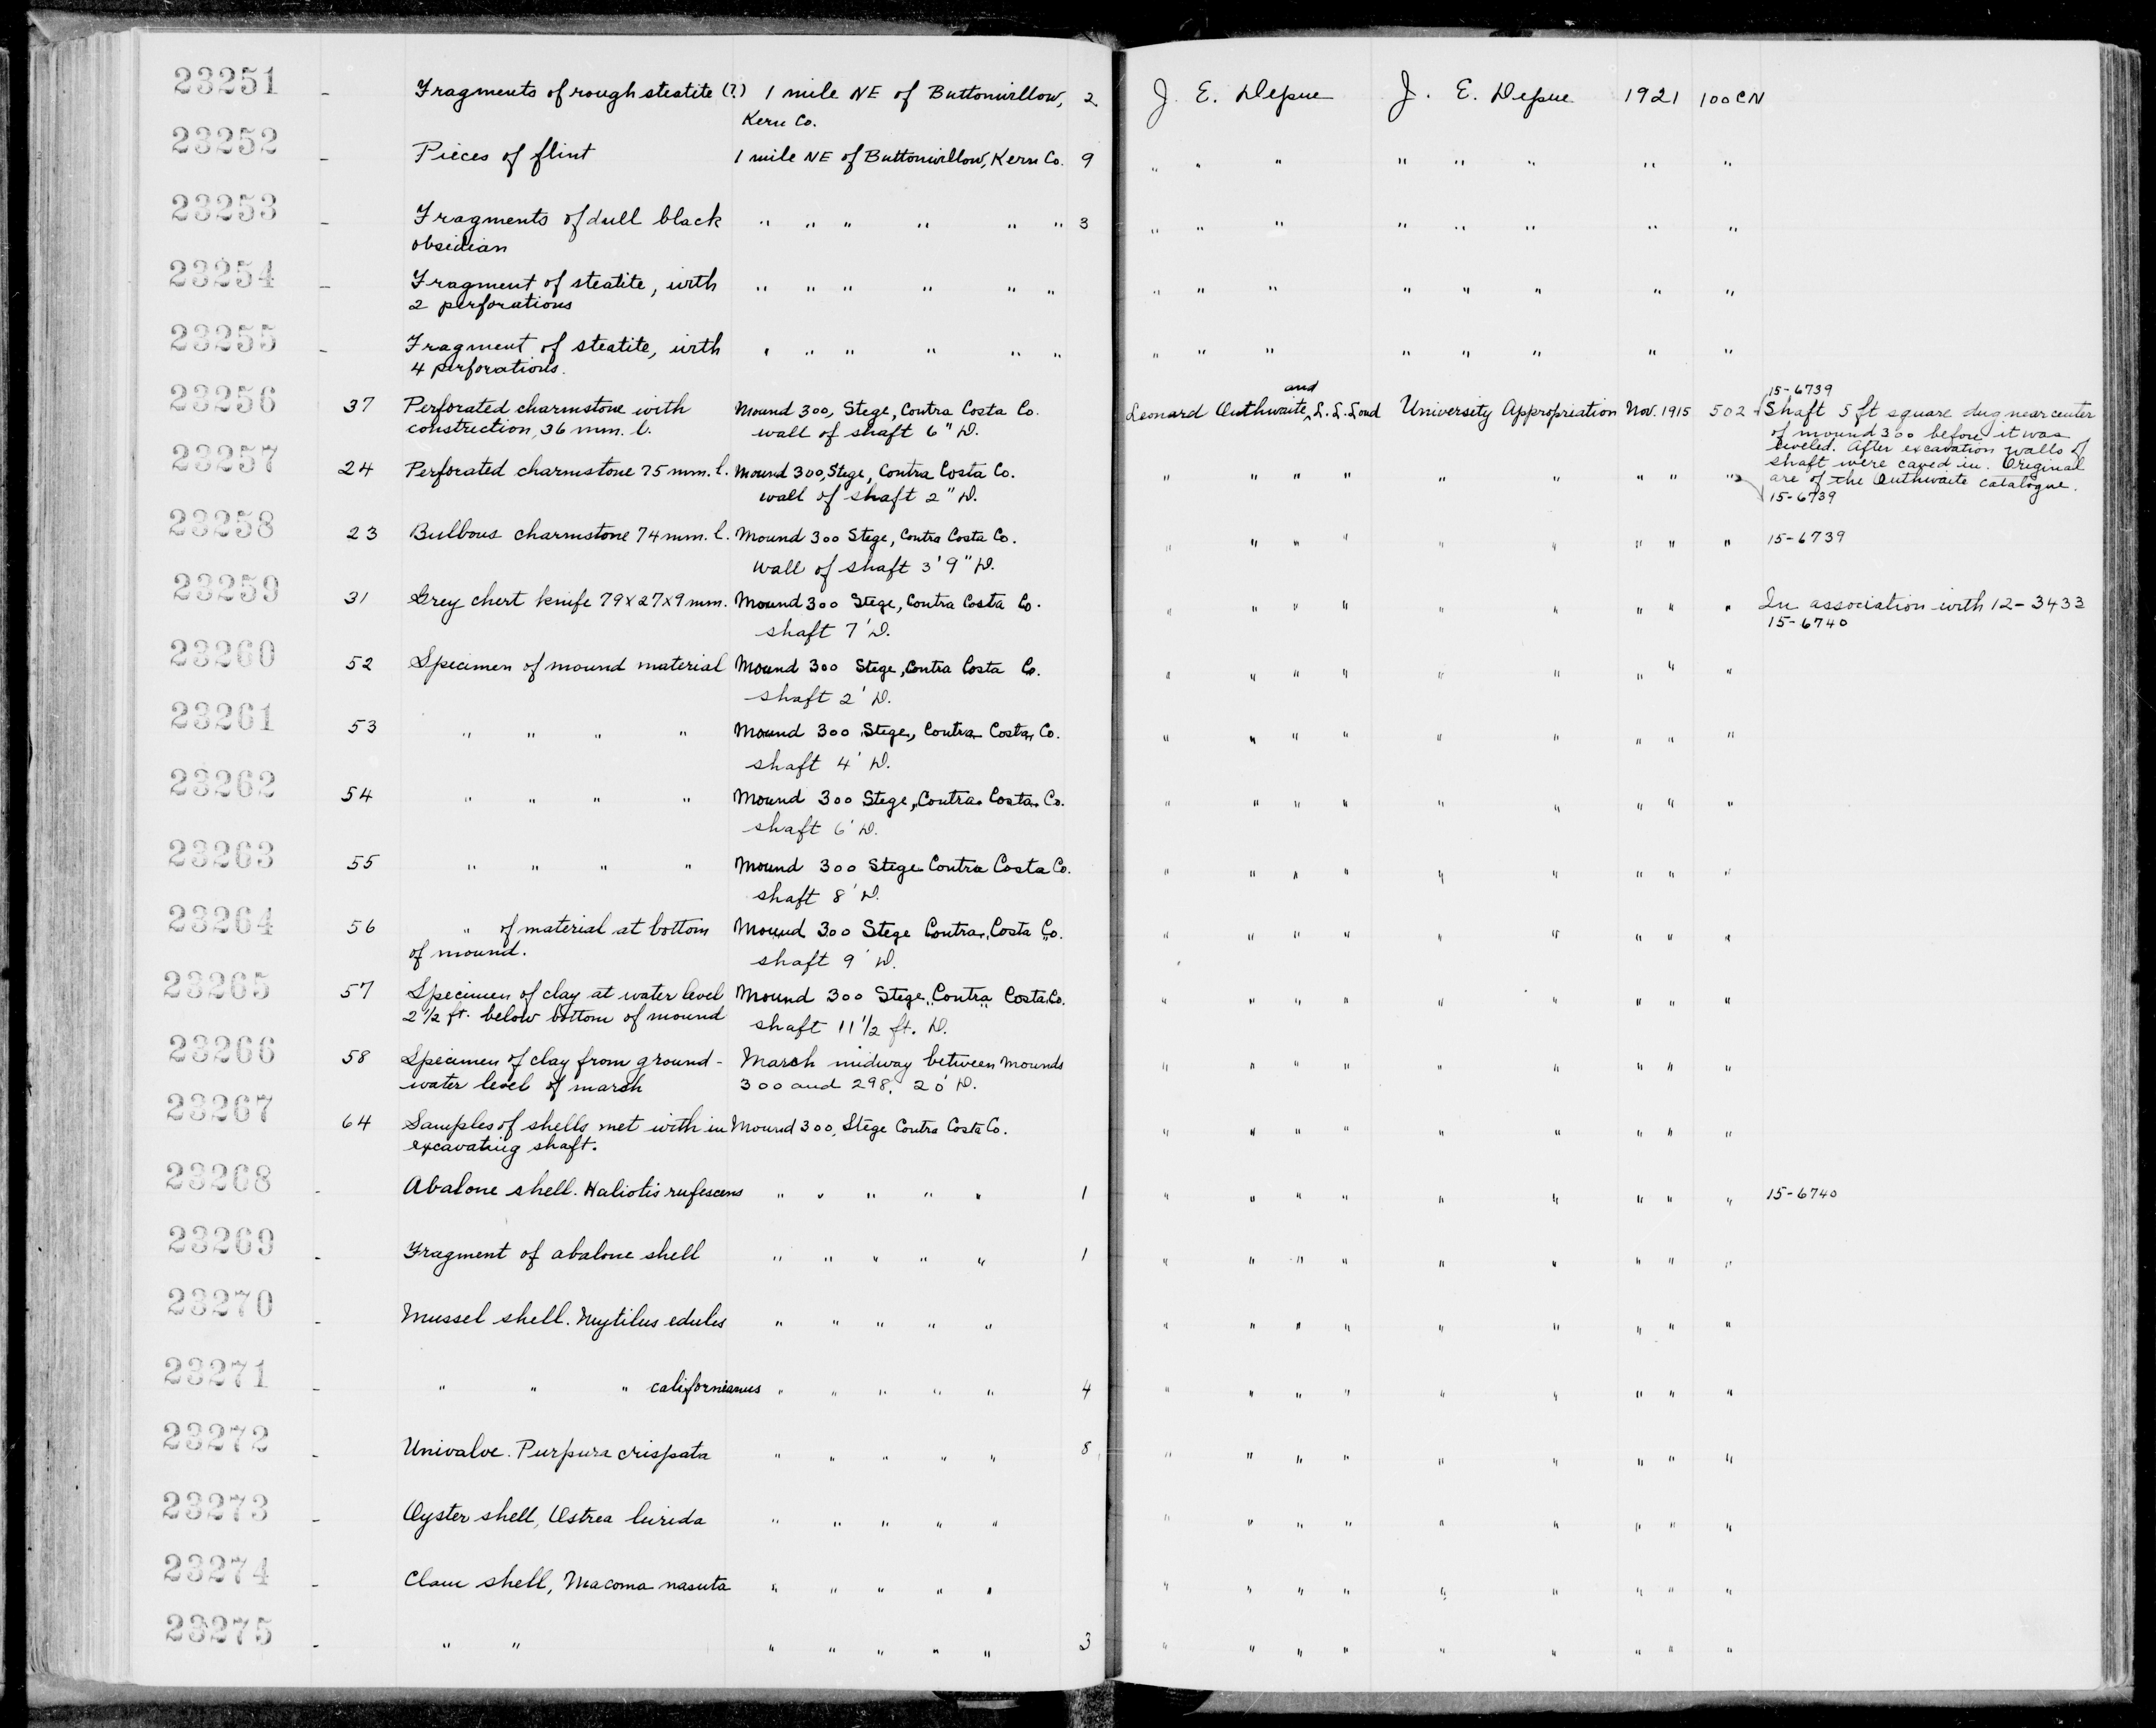 23251 - Fragments of rough steatite (?) 1 mile NE of Buttonwillow, 2 J. E. Depue J. E. Depue 1921 100CN
Kern Co.
23252 - Pieces of flint 1 mile NE of Buttonwillow, Kern Co. 9 " " " " " " " "
23253 - Fragments of dull black " " " " " " 3 " " " " " " " "
obsidian
23254 - Fragment of steatite, with " " " " " " " " " " " " " "
2 perforations
23255 - Fragment of steatite, with " " " " " " " " " " " " " "
4 perforations.
and 15-6739
23256 37 Perforated charmstone with Mound 300, Stege, Contra Costa Co. Leonard Outhwaite, L. L. Loud University Appropriation Nov. 1915 502 Shaft 5 ft square dug near center
constriction, 36 mm. l. wall of shaft 6" D. of mound 300 before it was
leveled. After excavation walls of
shaft were caved in. Original
23257 24 Perforated charmstone 75 mm. l. Mound 300, Stege, Contra Costa Co. " " " " " " " " " are of the Outhwaite catalogue.
wall of shaft 2" D. 15-6739
23258 23 Bulbous charmstone 74 mm. l. Mound 300 Stege, Contra Costa Co. " " " " " " " " " 15-6739
wall of shaft 3' 9" D.
23259 31 Grey chert knife 79x27x9 mm. Mound 300 Stege, Contra Costa Co. " " " " " " " " " In association with 12-3433
shaft 7' D. 15-6740
23260 52 Specimen of mound material Mound 300 Stege, Contra Costa Co. " " " " " " " " "
shaft 2' D.
23261 53 " " " " Mound 300 Stege, Contra Costa Co. " " " " " " " " "
shaft 4' D.
23262 54 " " " " Mound 300 Stege, Contra Costa Co. " " " " " " " " "
shaft 6' D.
23263 55 " " " " Mound 300 Stege Contra Costa Co. " " " " " " " " "
shaft 8' D.
23264 56 " of material at bottom Mound 300 Stege Contra Costa Co. " " " " " " " " "
of mound. shaft 9' D.
23265 57 Specimen of clay at water level Mound 300 Stege, Contra Costa Co. " " " " " " " " "
2 1/2 ft. below bottom of mound shaft 11 1/2 ft. D.
23266 58 Specimen of clay from ground- Marsh midway between mounds " " " " " " " " "
water level of marsh 300 and 298. 20' D.
23267 64 Samples of shells met with in Mound 300, Stege Contra Costa Co. " " " " " " " " "
excavating shaft.
23268 - Abalone shell. Haliotis rufescens " " " " " 1 " " " " " " " " " 15-6740
23269 - Fragment of abalone shell " " " " " 1 " " " " " " " " "
23270 - Mussel shell. Mytilus edulis " " " " " " " " " " " " " "
23271 - " " " californianus " " " " " 4 " " " " " " " " "
23272 - Univalve. Purpura crispata " " " " " 8 " " " " " " " " "
23273 - Oyster shell, Ostrea lurida " " " " " " " " " " " " " "
23274 - Clam shell, Macoma nasuta " " " " " " " " " " " " " "
23275 - " " " " " " " 3 " " " " " " " " "